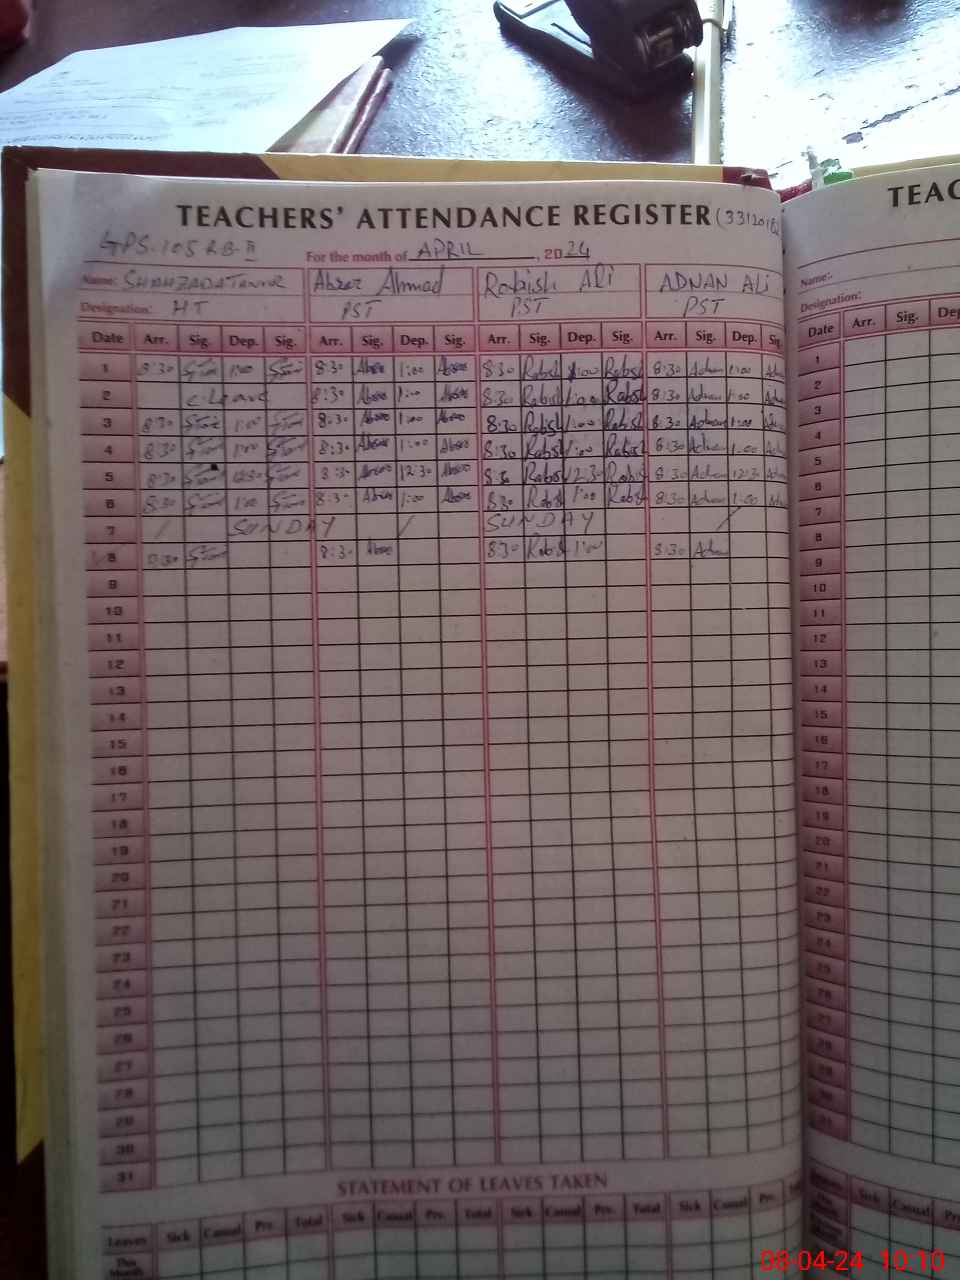 TEACHERS' ATTENDANCE REGISTER (3312018
GPS. 105 RB-II
For the month of APRIL, 2024
Name: SHAHZADA TANVIR Abzar Ahmad Rabish Ali ADNAN ALi
Designation: HT PST PST PST
Date Arr. Sig. Dep. Sig. Arr. Sig. Dep. Sig. Arr. Sig. Dep. Sig. Arr. Sig. Dep. Sig.
1 8:30 1:00 8:30 1:00 8:30 Rabish 1:00 Rabish 8:30 Adnan 1:00
2 C. Leave 8:30 1:00 8:30 Rabish 1:00 Rabish 8:30 Adnan 1:00
3 8:30 1:00 8:30 1:00 8:30 Rabish 1:00 Rabish 8:30 Adnan 1:00
4 8:30 1:00 8:30 1:00 8:30 Rabish 1:00 Rabish 8:30 Adnan 1:00
5 8:30 12:30 8:30 12:30 8:30 Rabish 12:30 Rabish 8:30 Adnan 12:30
6 8:30 1:00 8:30 1:00 8:30 Rabish 1:00 Rabish 8:30 Adnan 1:00
7 / SUNDAY / SUNDAY /
8 8:30 8:30 8:30 Rabish 1:00 8:30 Adnan
9
10
11
12
13
14
15
16
17
18
19
20
21
22
23
24
25
26
27
28
29
30
31
STATEMENT OF LEAVES TAKEN
Leaves Sick Casual Pre. Total Sick Casual Pre. Total Sick Casual Pre. Total Sick Casual Pre.
This
Month
TEAC
Name:
Designation:
Date Arr. Sig. Dep
1
2
3
4
5
6
7
8
9
10
11
12
13
14
15
16
17
18
19
20
21
22
23
24
25
26
27
28
Sick Casual Pre
08-04-24 10:10